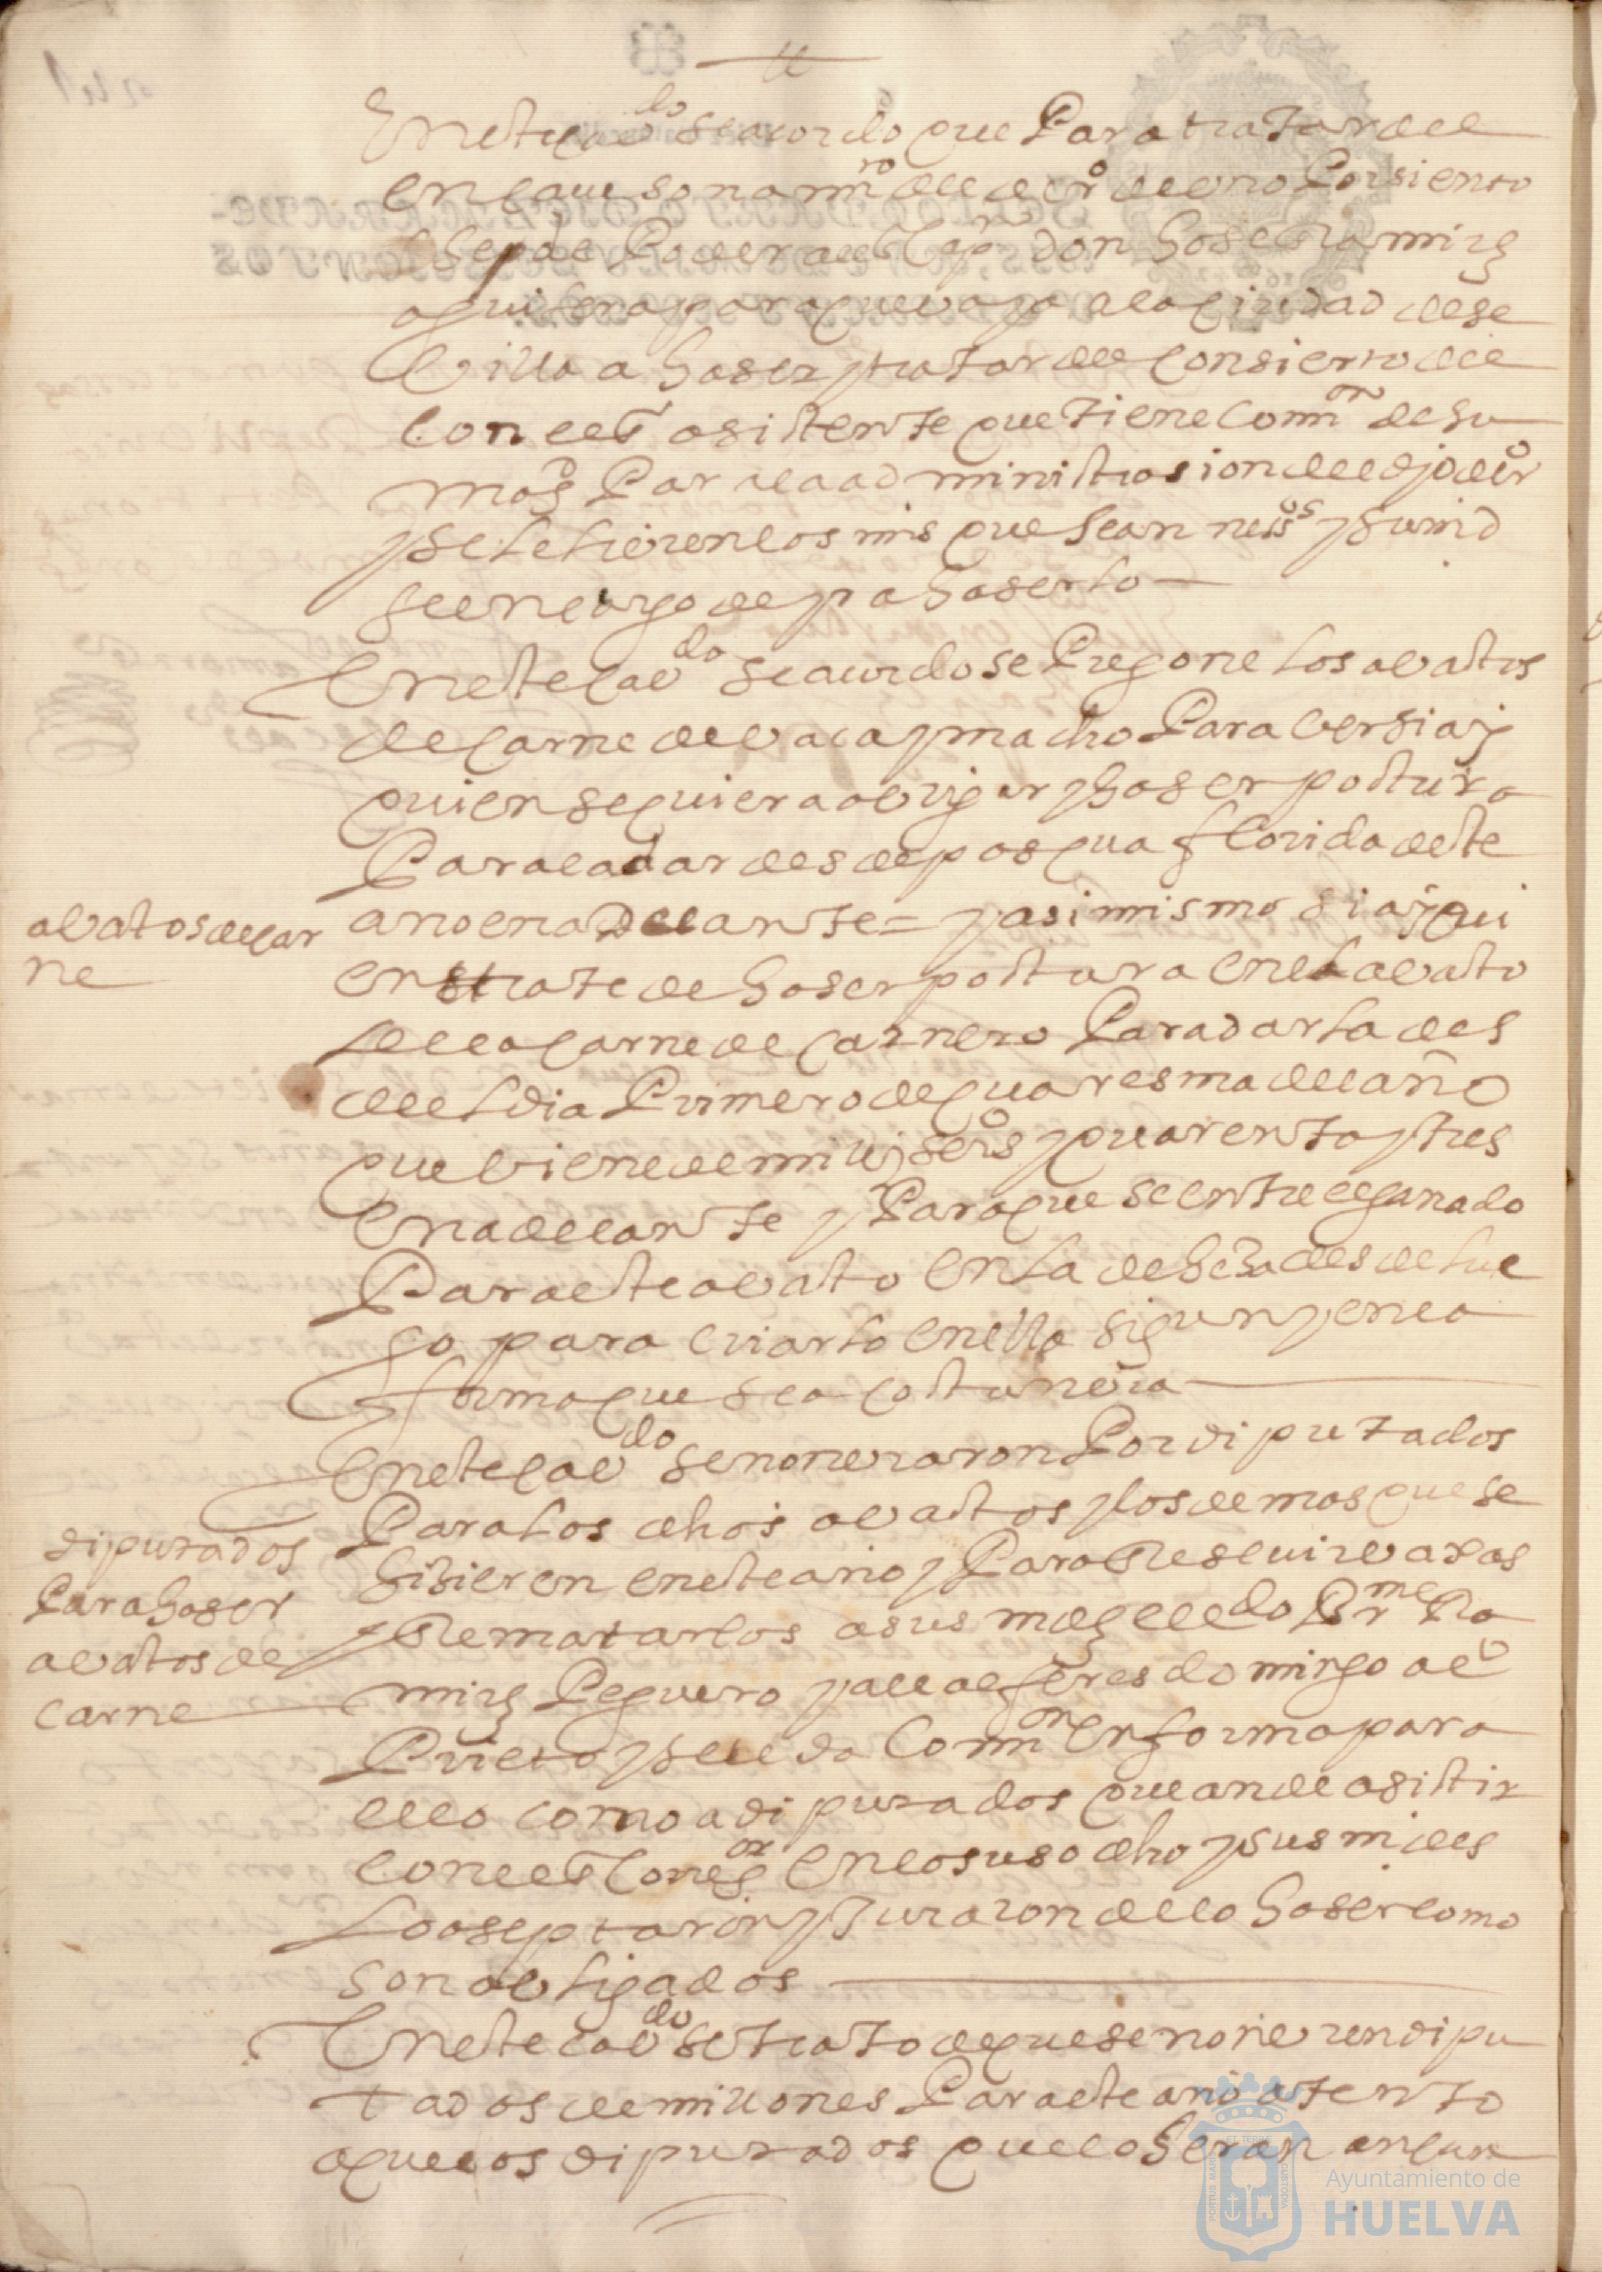 En este cavdo se acordo que Para tratar de el
encavesonamro de el dro de uno Por siento
se pde Poder al Sr Capn don Jose Ramirez
aguilera para que vaya a la ciudad de se
villa a haser y tratar de el consierto de el
con el Sr asistente que tiene Comon de su
magd Para la administrasion de el dho dro
y se le libren los mrs que sean nesos y su md
se encargo de yr a haserlo
En este cavdo se acordo se Pregone los avastos
de carne de vaca y macho Para ver si ay
quien se quiera obligar y haser postura
Para la dar desde pasqua florida deste
año en adelante = y asi mismo si ay qui
en trate de haser postura en el avasto
de la carne de carnero Para darla des
de el dia Primero de quaresma de el año
que viene de mil y seisos y quarenta y tres
en adelante y Para que se entre el ganado
Para este avasto en la dehesa desde lue
go para criarlo en ella sigun y en la
forma que sea costunbra
avastos de car
ne
En este cavdo se nonbraron Por diputados
Para los dhos avastos y los demas que se
hisieren en este año y Para Reseuir vaxas
y Rematarlos a sus mdes el ldo Brme Ra
mirez Peguero y al alferes domingo alo
Prieto y se les da Comon en forma para
ello como a diputados que an de asistir
con el Sr Corregor en lo suso dho y sus mdes
lo aseptaron y Juraron de lo haser como
son obligados
diputados
Para haser
avastos de
carne
En este cavdo se trato de que se nonbren dipu
tados de millones Para este año atento
a que los diputados que lo heran an cun
Ayuntamiento de
HUELVA